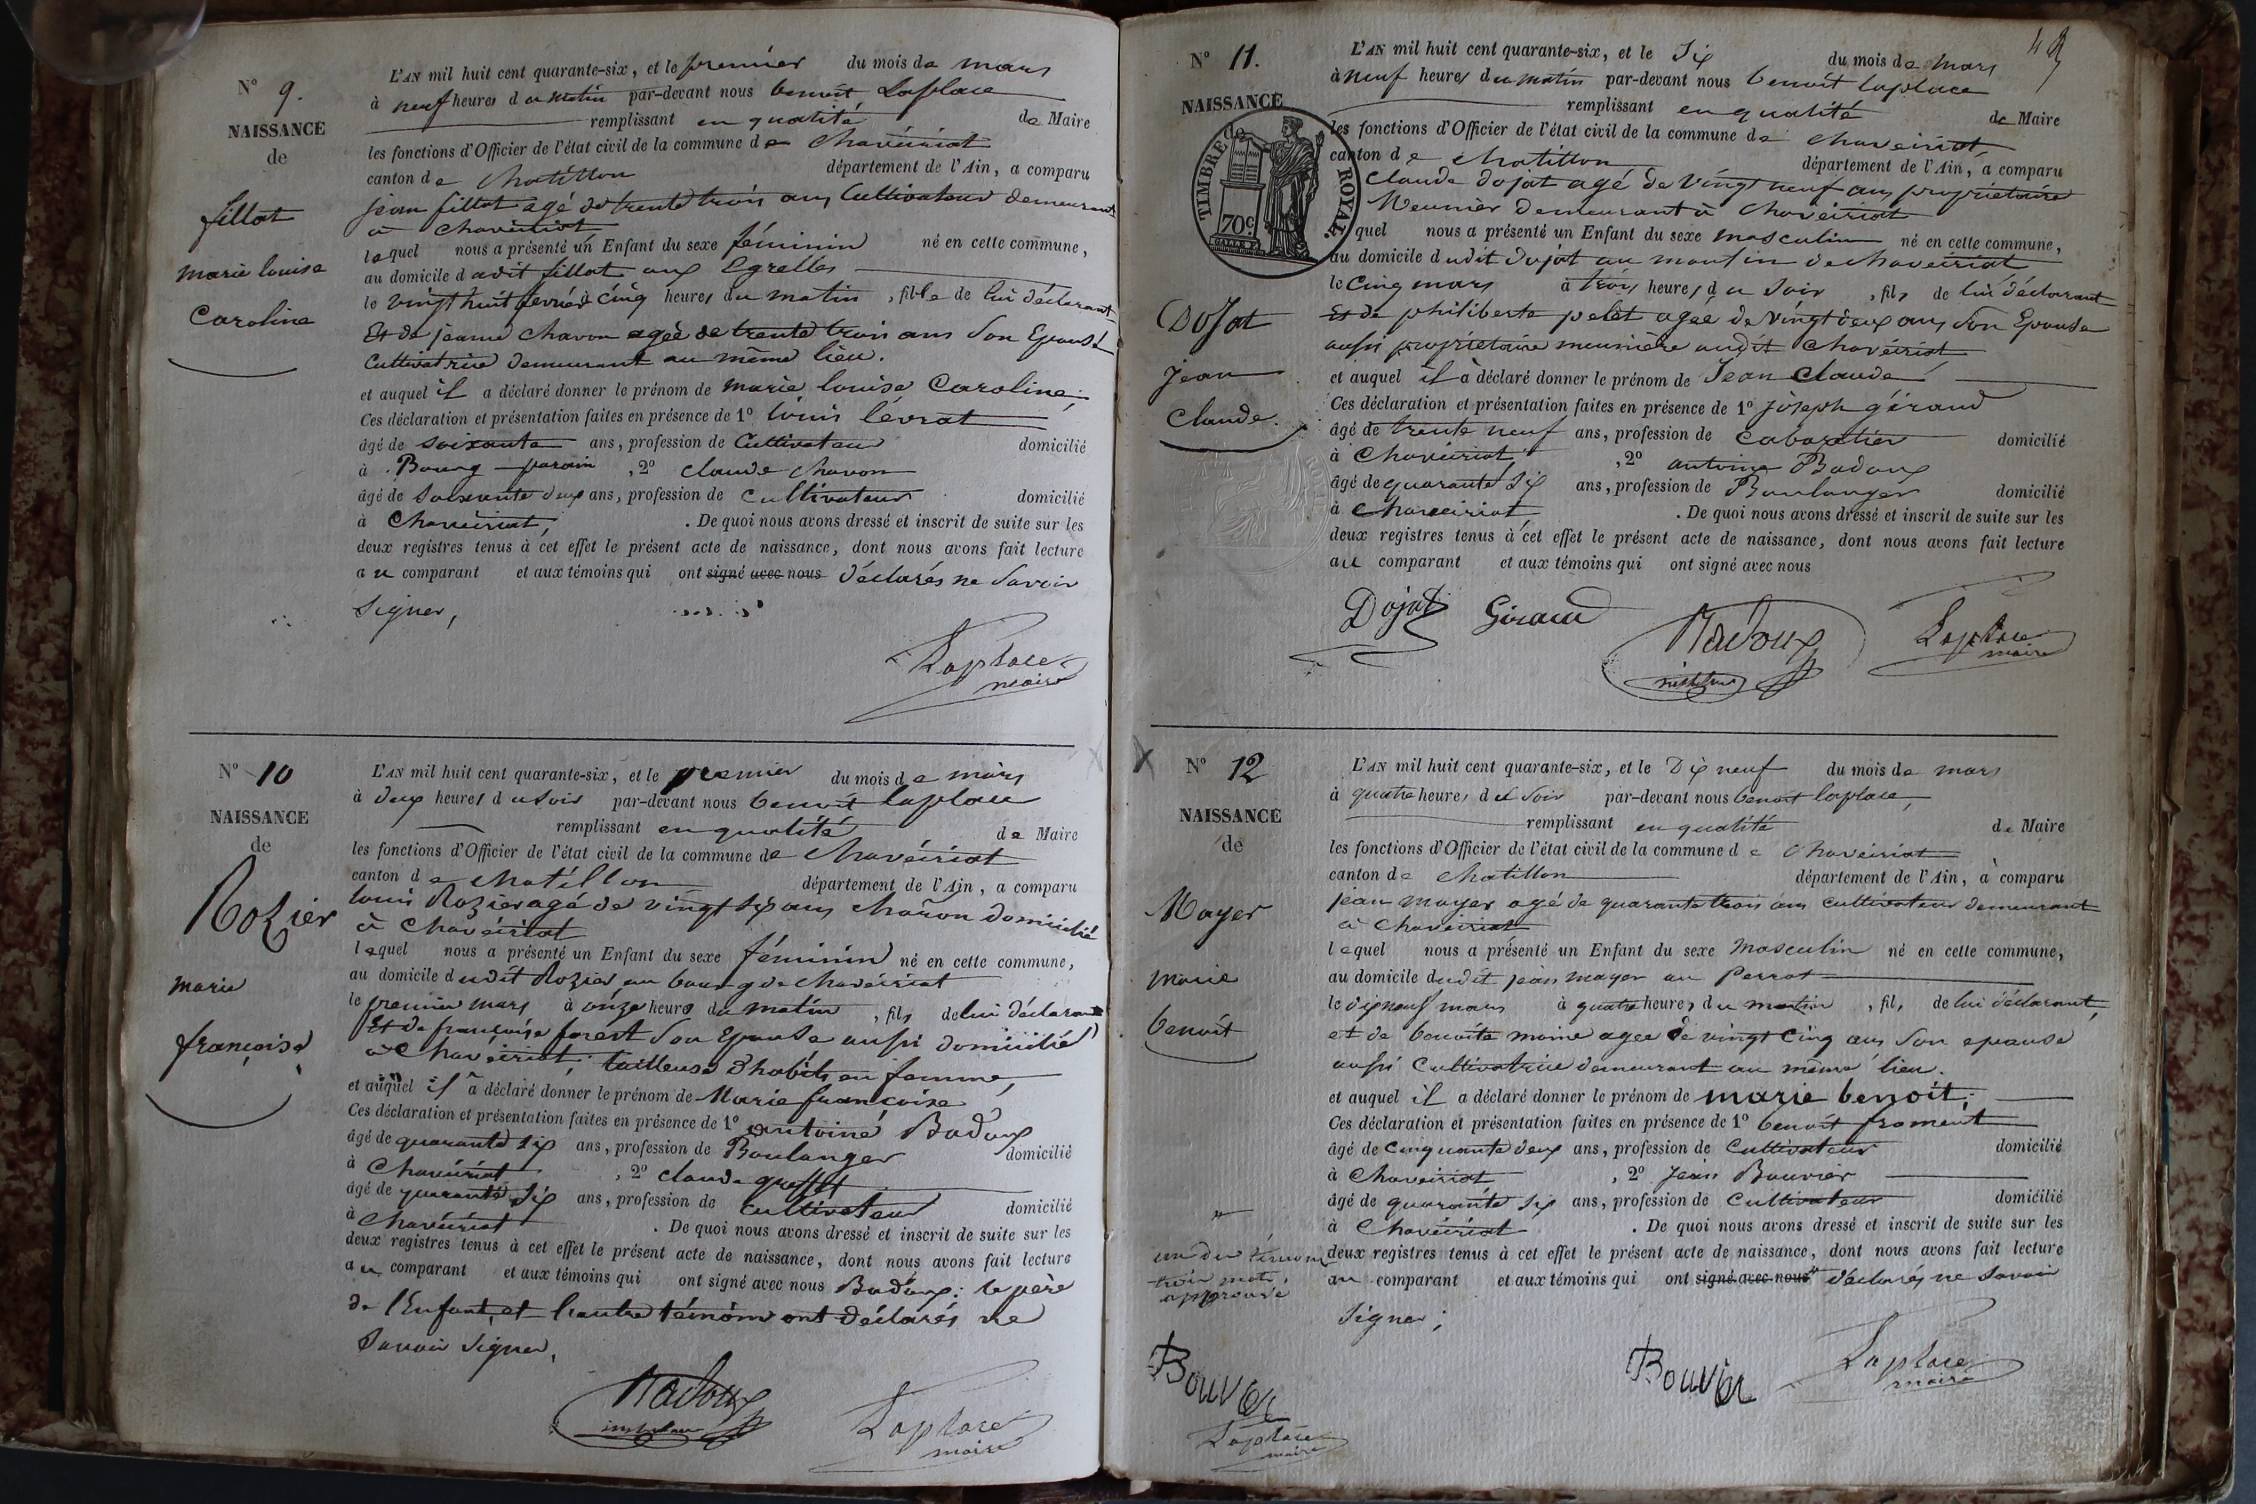 N° 9.
NAISSANCE
de
fillot
marie louise
Caroline
L'AN mil huit cent quarante-six, et le premier du mois de mars
à neuf heures du matin par-devant nous benoit Laplace
remplissant en qualité de Maire
les fonctions d'Officier de l'état civil de la commune de Chavéiriat
canton de Chatillon département de l'Ain, a comparu
jean fillot agé de trente trois ans Cultivateur demeurant
à Chavéiriat
lequel nous a présenté un Enfant du sexe féminin né en cette commune,
au domicile dudit fillot aux Egrelles
le vingt huit fevrier à cinq heures du matin, fille de lui déclarant
Et de jeanne Chavon agée de trente trois ans Son Epouse
Cultivatrice demeurant au même lieu.
et auquel il a déclaré donner le prénom de marie louise Caroline;
Ces déclaration et présentation faites en présence de 1° louis lévrat
âgé de soixante ans, profession de Cultivateur domicilié
à Bourg , 2° claude Chavon
âgé de Soixante deux ans, profession de Cultivateur domicilié
à Chavéiriat, . De quoi nous avons dressé et inscrit de suite sur les
deux registres tenus à cet effet le présent acte de naissance, dont nous avons fait lecture
au comparant et aux témoins qui ont signé avec nous déclarés ne Savoir
Signer,
Laplace
maire
N° 10
NAISSANCE
de
Rozier
marie
françoise
L'AN mil huit cent quarante-six, et le premier du mois de mars
à deux heures du Soir par-devant nous benoit laplace
remplissant en qualité de Maire
les fonctions d'Officier de l'état civil de la commune de Chavéiriat
canton de Chatillon département de l'Ain, a comparu
louis Rozier agé de vingt six ans charon domicilié
à Chavéiriat
lequel nous a présenté un Enfant du sexe féminin né en cette commune,
au domicile dudit Rozier au bourg de Chavéiriat
le premier mars à onze heures du matin, fils de lui déclarant
Et de françoise forest Son Epouse aussi domicilié
à Chavéiriat, tailleuse d'habits en femme,
et auquel il a déclaré donner le prénom de Marie françoise
Ces déclaration et présentation faites en présence de 1° antoine Badoux
âgé de quarante six ans, profession de Boulanger domicilié
à Chavéiriat , 2° claude greffet
âgé de quarante six ans, profession de Cultivateur domicilié
à Chavéiriat . De quoi nous avons dressé et inscrit de suite sur les
deux registres tenus à cet effet le présent acte de naissance, dont nous avons fait lecture
au comparant et aux témoins qui ont signé avec nous Badoux; le père
de l'Enfant, et l'autre témoin ont déclarés ne
Savoir Signer,
Badoux
Laplace
maire
N° 11.
NAISSANCE
de
TIMBRE ROYAL.
70c
Dojat
Jean
Claude.
L'AN mil huit cent quarante-six, et le Six du mois de mars
à neuf heures du matin par-devant nous benoit laplace
remplissant en qualité de Maire
les fonctions d'Officier de l'état civil de la commune de Chavéiriat
canton de Chatillon département de l'Ain, a comparu
Claude dojat agé de vingt neuf ans proprietaire
Meunier demeurant à Chavéiriat
quel nous a présenté un Enfant du sexe masculin né en cette commune,
au domicile dudit Dojat au moulin de chaveiriat
le Cinq mars à trois heures du Soir, fils de lui déclarant
Et de philiberte pelet agée de vingt deux ans Son Epouse
aussi propriétaire meunière audit Chavéiriat
et auquel il a déclaré donner le prénom de Jean Claude
Ces déclaration et présentation faites en présence de 1° Joseph géraud
âgé de trente neuf ans, profession de Cabaretier domicilié
à Chavéiriat , 2° antoine Badoux
âgé de quarante six ans, profession de Boulanger domicilié
à Chavéiriat . De quoi nous avons dressé et inscrit de suite sur les
deux registres tenus à cet effet le présent acte de naissance, dont nous avons fait lecture
au comparant et aux témoins qui ont signé avec nous
Dojat Giraud
Badoux
Laplace
maire
N° 12
NAISSANCE
de
Mayer
marie
benoit
L'AN mil huit cent quarante-six, et le Dix neuf du mois de mars
à quatre heures du Soir par-devant nous benoit laplace,
remplissant en qualité de Maire
les fonctions d'Officier de l'état civil de la commune de Chaveiriat
canton de Chatillon département de l'Ain, a comparu
jean mayer agé de quarante trois ans cultivateur demeurant
à Chaveiriat
lequel nous a présenté un Enfant du sexe Masculin né en cette commune,
au domicile dudit jean mayer au Perrat
le dix neuf mars à quatre heures du matin, fils de lui déclarant,
et de benoite moine agee de vingt cinq ans Son epouse
aussi Cultivatrice demeurant au même lieu.
et auquel il a déclaré donner le prénom de marie benoit;
Ces déclaration et présentation faites en présence de 1° benoit froment
âgé de cinquante deux ans, profession de Cultivateur domicilié
à Chaveiriat , 2° Jean Bouvier
âgé de quarante six ans, profession de Cultivateur domicilié
à Chavéiriat . De quoi nous avons dressé et inscrit de suite sur les
deux registres tenus à cet effet le présent acte de naissance, dont nous avons fait lecture
au comparant et aux témoins qui ont signé avec nous déclarés ne Savoir
Signer;
un des témoins
trois mots,
approuvé
Bouvier
Laplace
maire
Bouvier
Laplace
maire